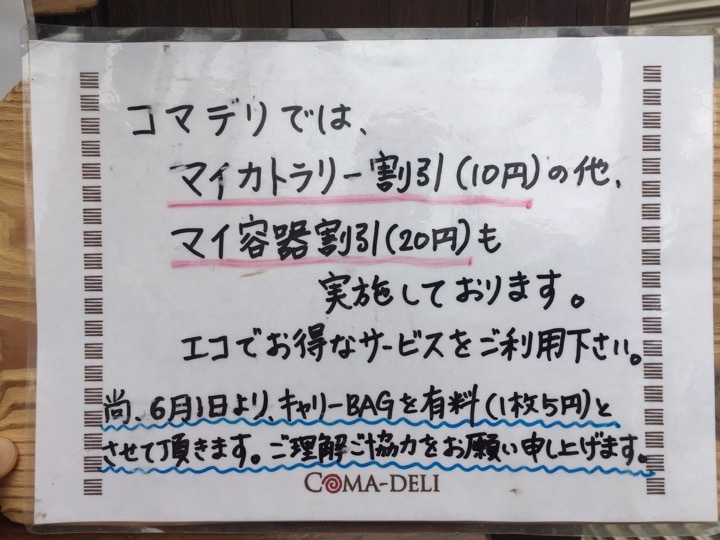 コマデリでは、
マイカトラリー割引(10円)の他、
マイ容器割引(20円)も
実施しております。
エコでお得なサービスをご利用下さい。
尚、6月1日より、キャリーBAGを有料(1枚5円)と
させて頂きます。ご理解ご協力をお願い申し上げます。
COMA-DELI